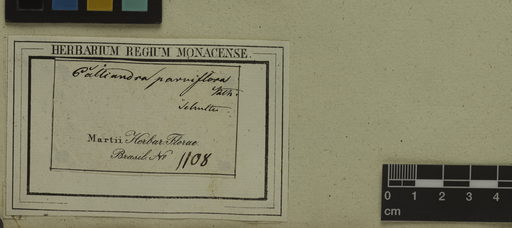 HERBARIUM REGIUM MONACENSE.
Calliandra parviflora
Bth.
Martii Herbar. Florae
Brasil. No 1108
0 1 2 3 4
cm